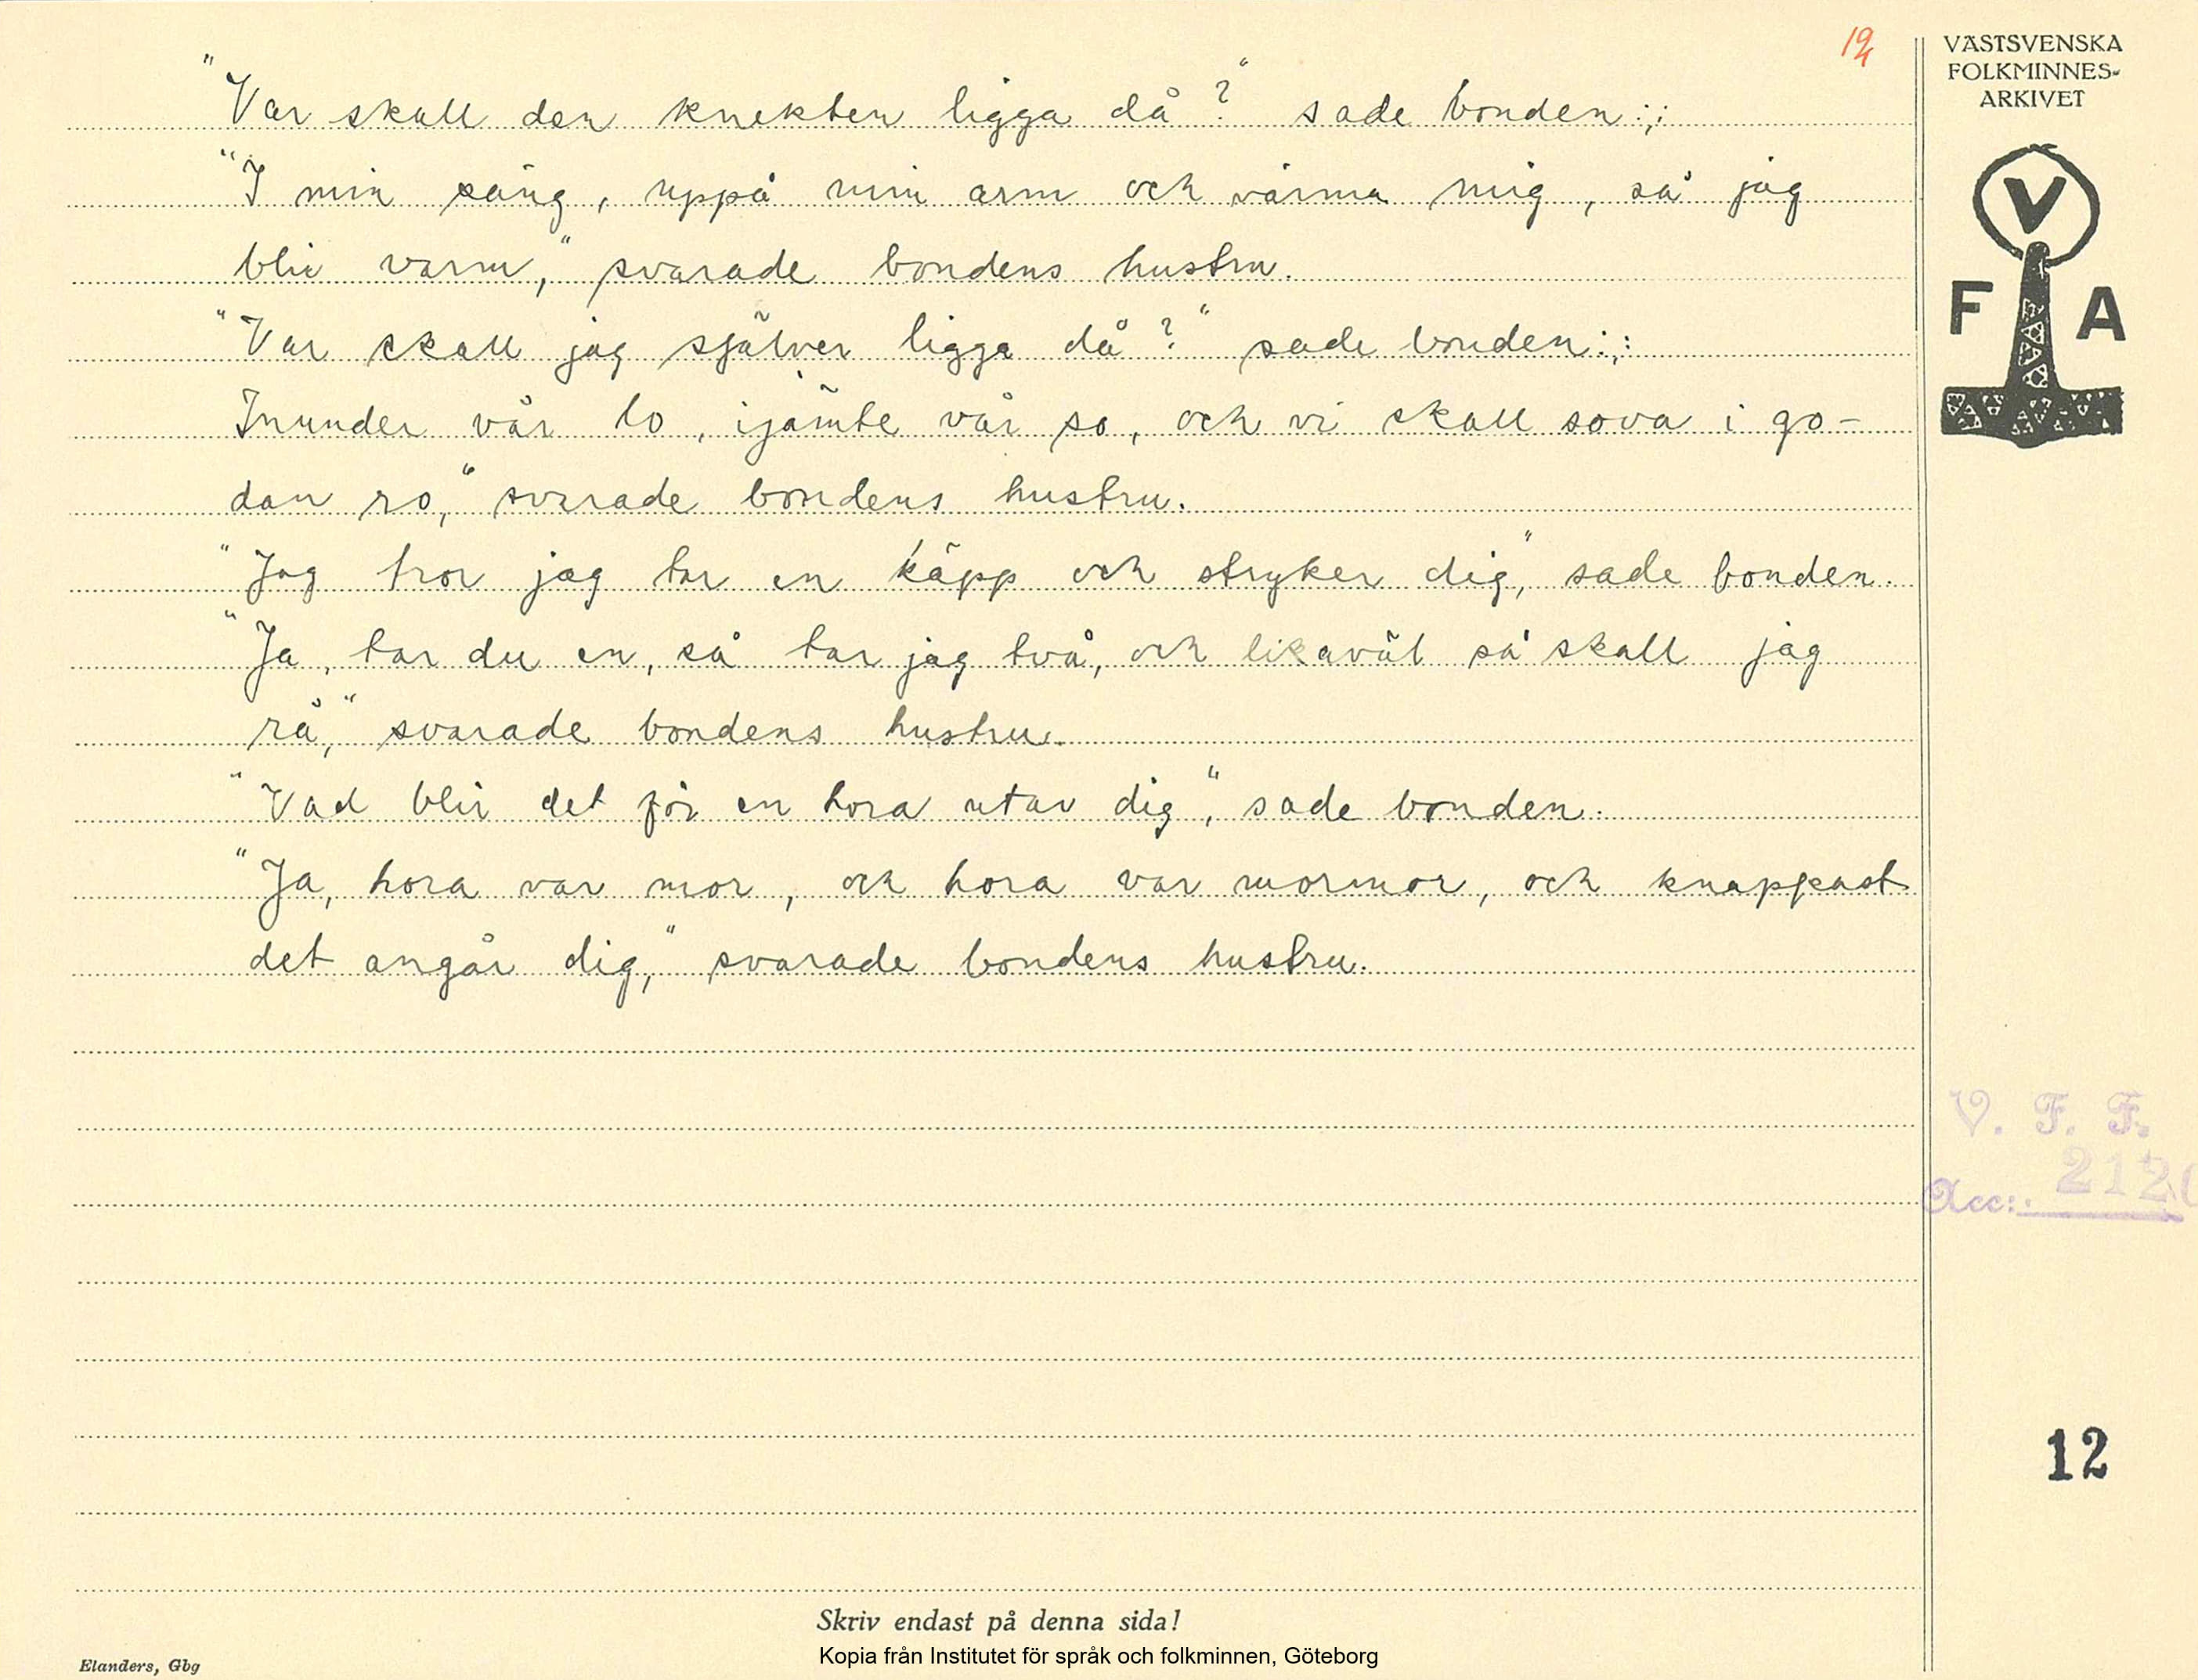 19/4
VÄSTSVENSKA
FOLKMINNES-
ARKIVET
V
F A
"Var skall den knekten ligga då?" sade bonden :,:
"I min säng, uppå min arm och värma mig, så jag
blir varm," svarade bondens hustru.
"Var skall jag själver ligga då?" sade bonden :,:
Inunder vår lo, ijämte vår so, och vi skall sova i go-
dan ro," svarade bondens hustru.
"Jag tror jag tar en käpp och stryker dig," sade bonden.
"Ja, tar du en, så tar jag två, och likaväl så skall jag
rå," svarade bondens hustru.
"Vad blir det för en hora utav dig," sade bonden.
"Ja, hora var mor, och hora var mormor, och knappast
det angår dig," svarade bondens hustru.
V. F. F.
Acc: 2120
12
Skriv endast på denna sida!
Kopia från Institutet för språk och folkminnen, Göteborg
Elanders, Gbg